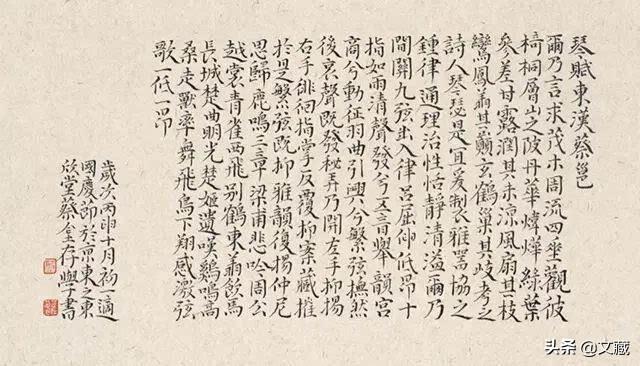 琴賦東漢蔡邕
爾乃言求茂木周流四垂觀彼
椅桐層山之陂丹華煒燁綠葉
參差甘露潤其末涼風扇其枝
鸞鳳翥其巔玄鶴巢其岐考之
詩人琴瑟是宜爰制雅器協之
鍾律通理治性恬靜清溢爾乃
間關九弦出入律呂屈伸低昂十
指如雨清聲發兮五音舉韻宮
商兮動徵羽曲引興兮繁弦撫然
後哀聲既發秘弄乃開左手抑揚
右手徘徊指掌反覆抑案藏摧
於是繁弦既抑雅韻復揚仲尼
思歸鹿鳴三章梁甫悲吟周公
越裳青雀西飛別鶴東翥飲馬
長城楚曲明光楚姬遺嘆鷄鳴高
桑走獸率舞飛鳥下翔感激弦
歌一低一昂
歲次丙申十月初一適
國慶節於京東之東
欣堂蔡金存學書
头条 @文藏